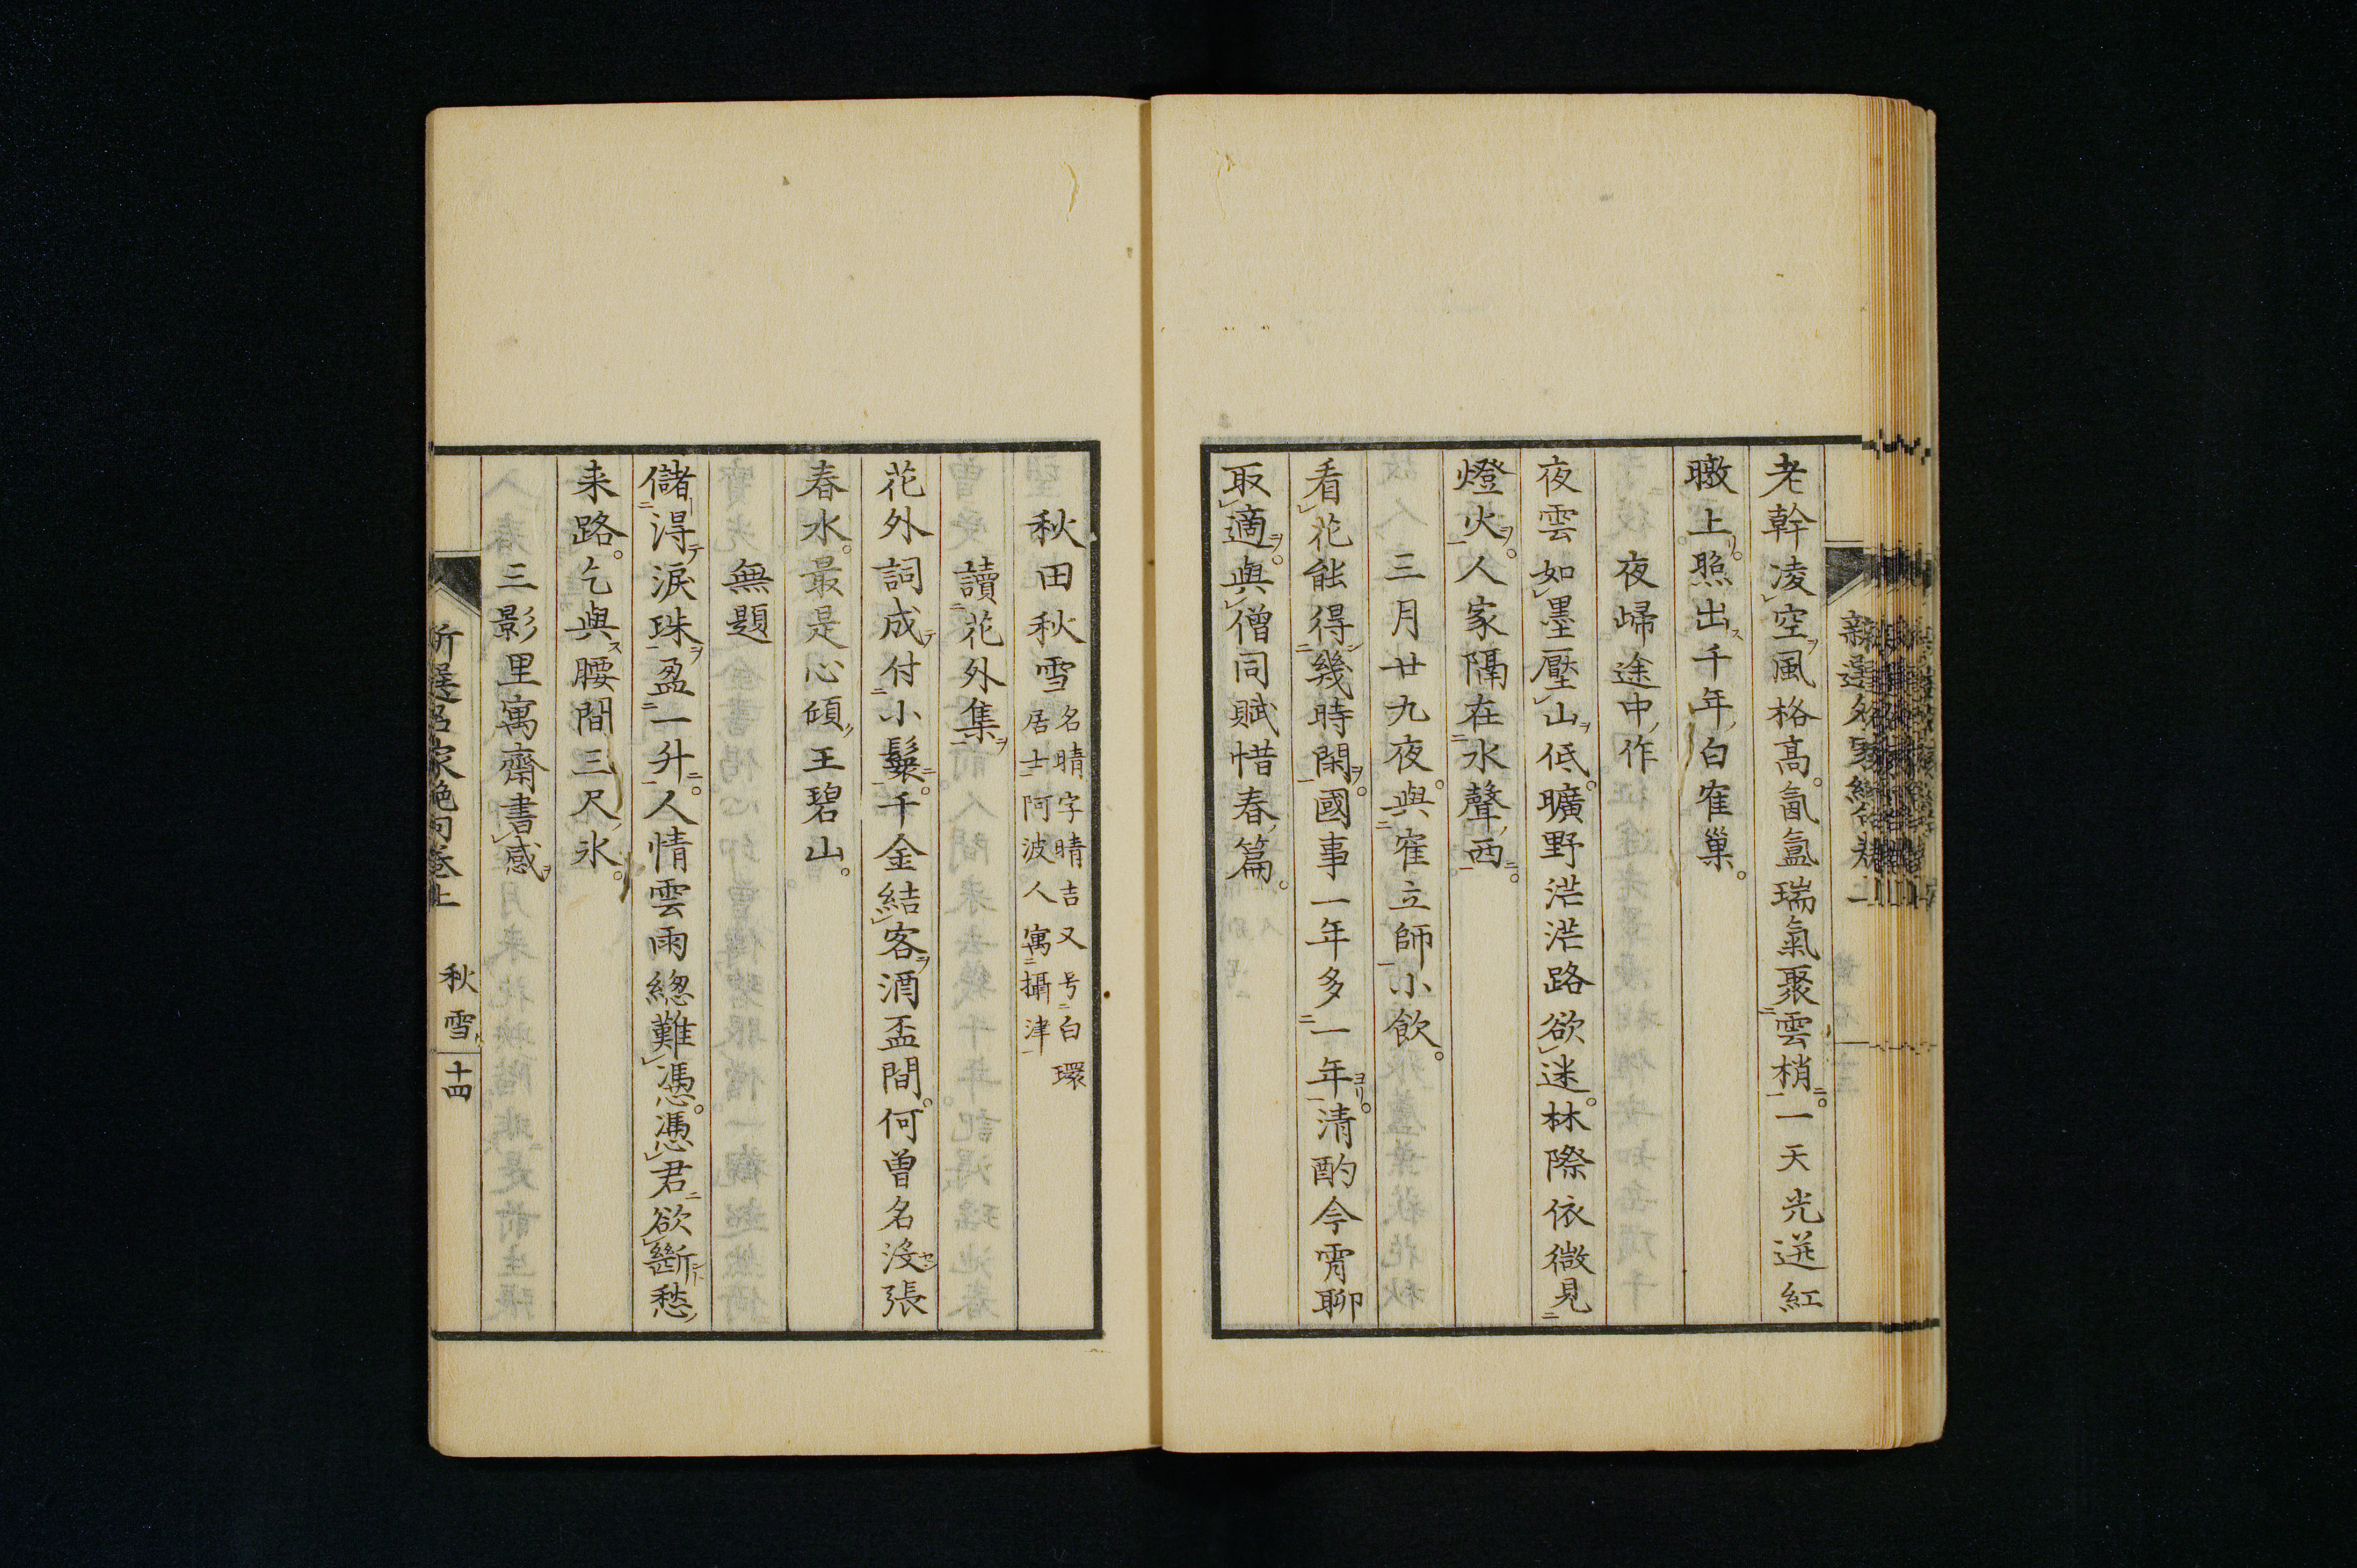 老幹凌空風格高氤氳瑞氣聚雲梢一天光迸紅
暾上照出千年白隺巢
夜歸途中作
夜雲如墨壓山低曠野茫茫路欲迷林際依微見
燈火人家隔在水聲西
三月廿九夜與隺立師小飲
看花能得幾時閑國事一年多一年清酌今宵聊
取適與僧同賦惜春篇
秋田秋雪 名晴字晴吉又号白環
居士阿波人寓攝津
讀花外集
花外詞成付小鬟千金結客酒盃間何曽名没張
春水最是心傾王碧山
無題
儲得淚珠盈一升人情雲雨總難憑憑君欲斷愁
来路乞與腰間三尺氷
三影里寓齋書感
新選名家絶句巻上 秋雪 十四